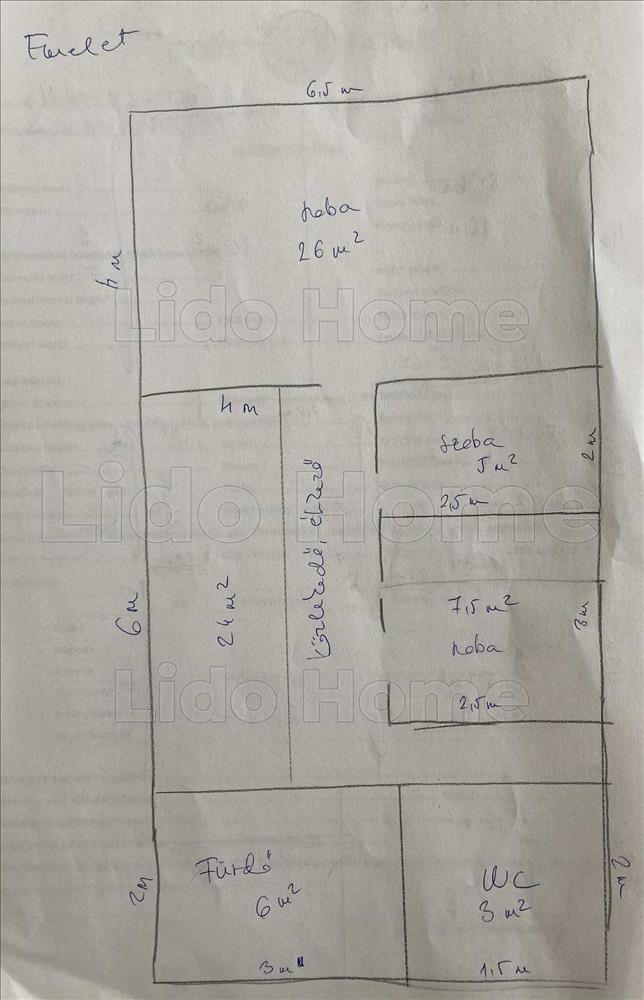 Emelet
6,5 m
szoba
26 m²
4 m
Lido Home
4 m
szoba
5 m²
2 m
2,5 m
Lido Home
24 m²
közlekedő, étkező
6 m
7,5 m²
szoba
3 m
2,5 m
Lido Home
Fürdő
6 m²
2 m
3 m
WC
3 m²
2 m
1,5 m